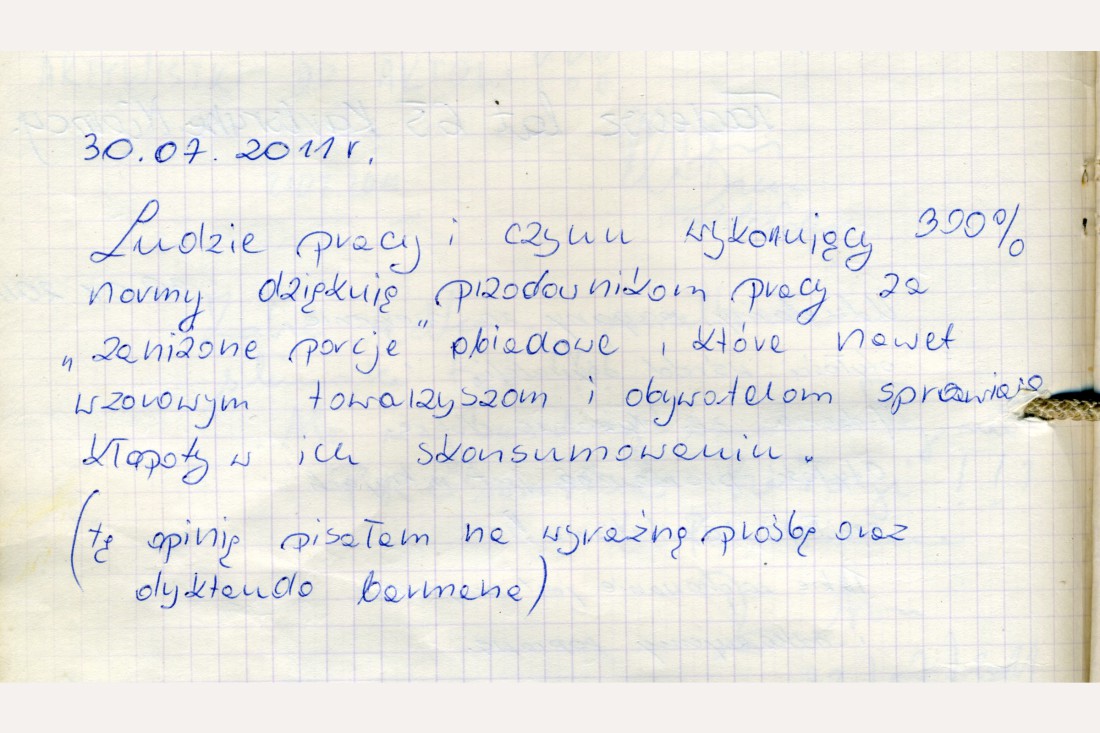 30.07.2011 r.
Ludzie pracy i czynu wykonujący 300%
normy dziękuję przodownikom pracy za
„zaniżone porcje" obiadowe, które nawet
wzorowym towarzyszom i obywatelom sprawiają
kłopoty w ich skonsumowaniu.
(tę opinię pisałam na wyraźną prośbę oraz
dyktando barmana)